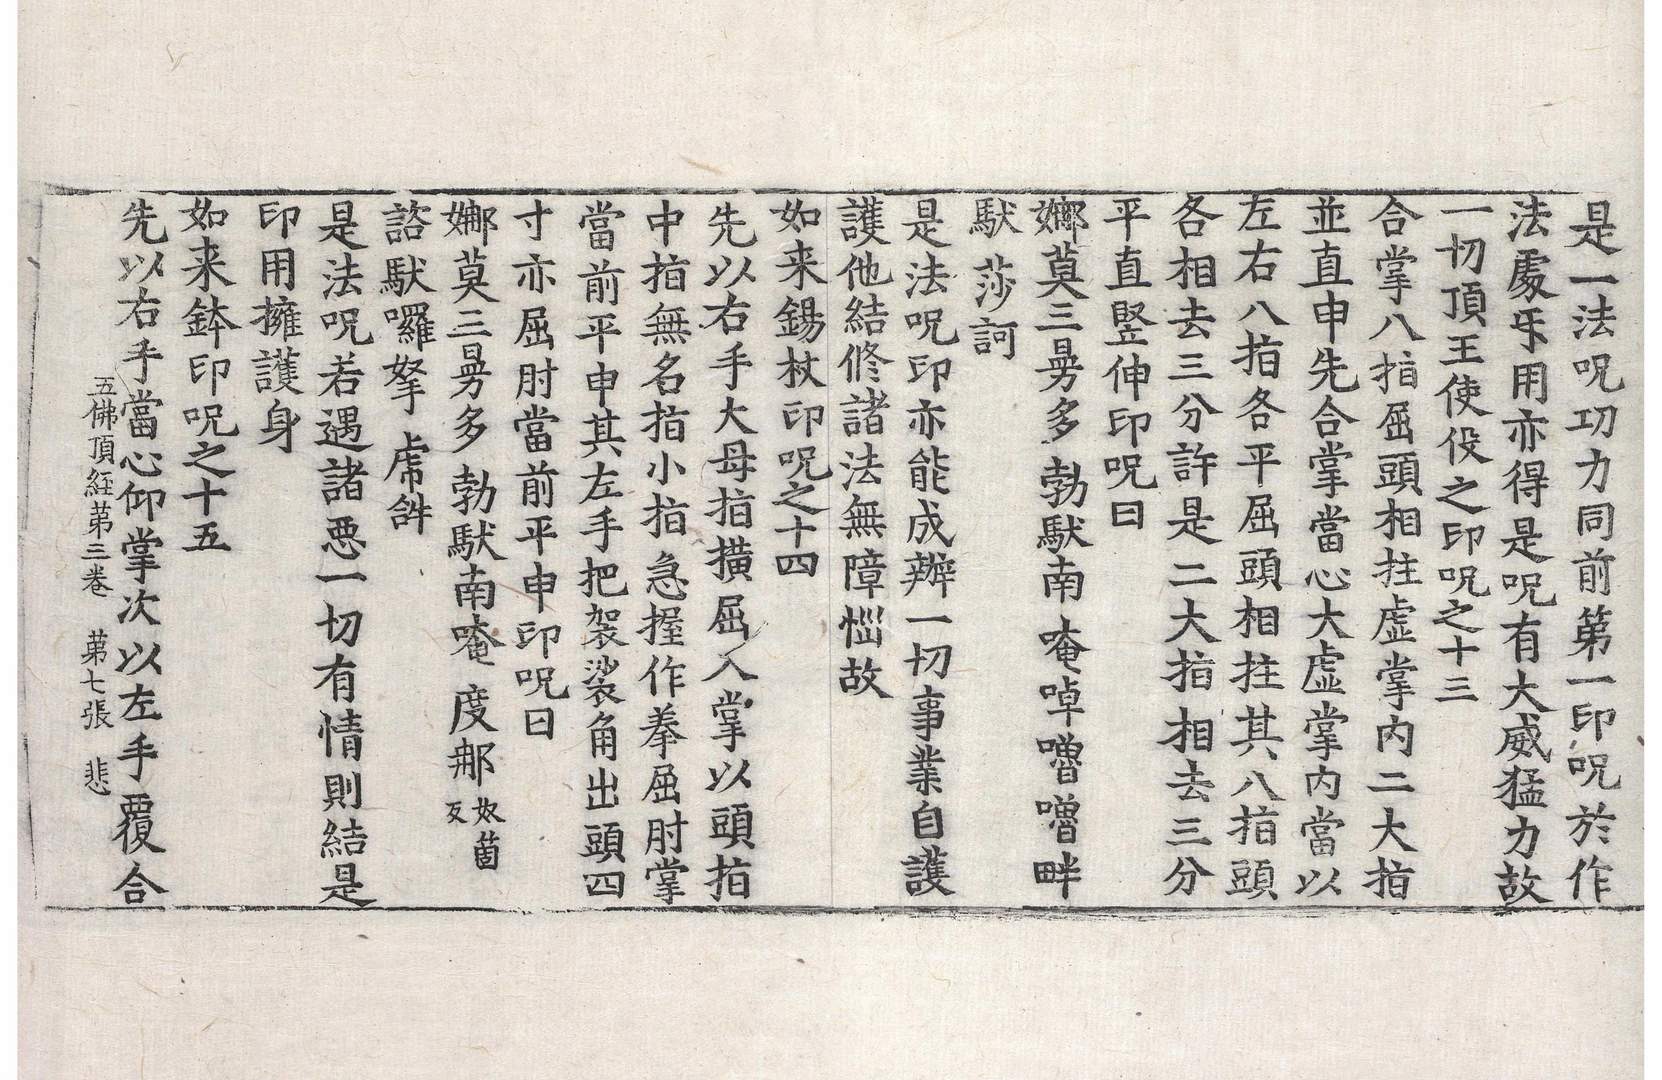 是一法呪功力同前第一印呪於作
法處𢪛用亦得是呪有大威猛力故
一切頂王使伇之印呪之十三
合掌八指屈頭相拄虛掌內二大指
並直申先合掌當心大虛掌內當以
左右八指各平屈頭相拄其八指頭
各相去三分許是二大指相去三分
平直竪伸印呪曰
娜莫三曼多勃馱南唵啅嚕嚕畔
馱莎訶
是法呪印亦能成辦一切事業自護
護他結修諸法無障惱故
如来錫杖印呪之十四
先以右手大母指撗屈入掌以頭指
中指無名指小指急握作拳屈肘掌
當前平申其左手把袈裟角出頭四
寸亦屈肘當前平申印呪曰
娜莫三曼多勃馱南唵度那奴箇反
諮馱囉拏虎𤙖
是法呪若遇諸悪一切有情則結是
印用擁護身
如来鉢印呪之十五
先以右手當心仰掌次以左手覆合
五佛頂経苐三卷 苐七張 悲